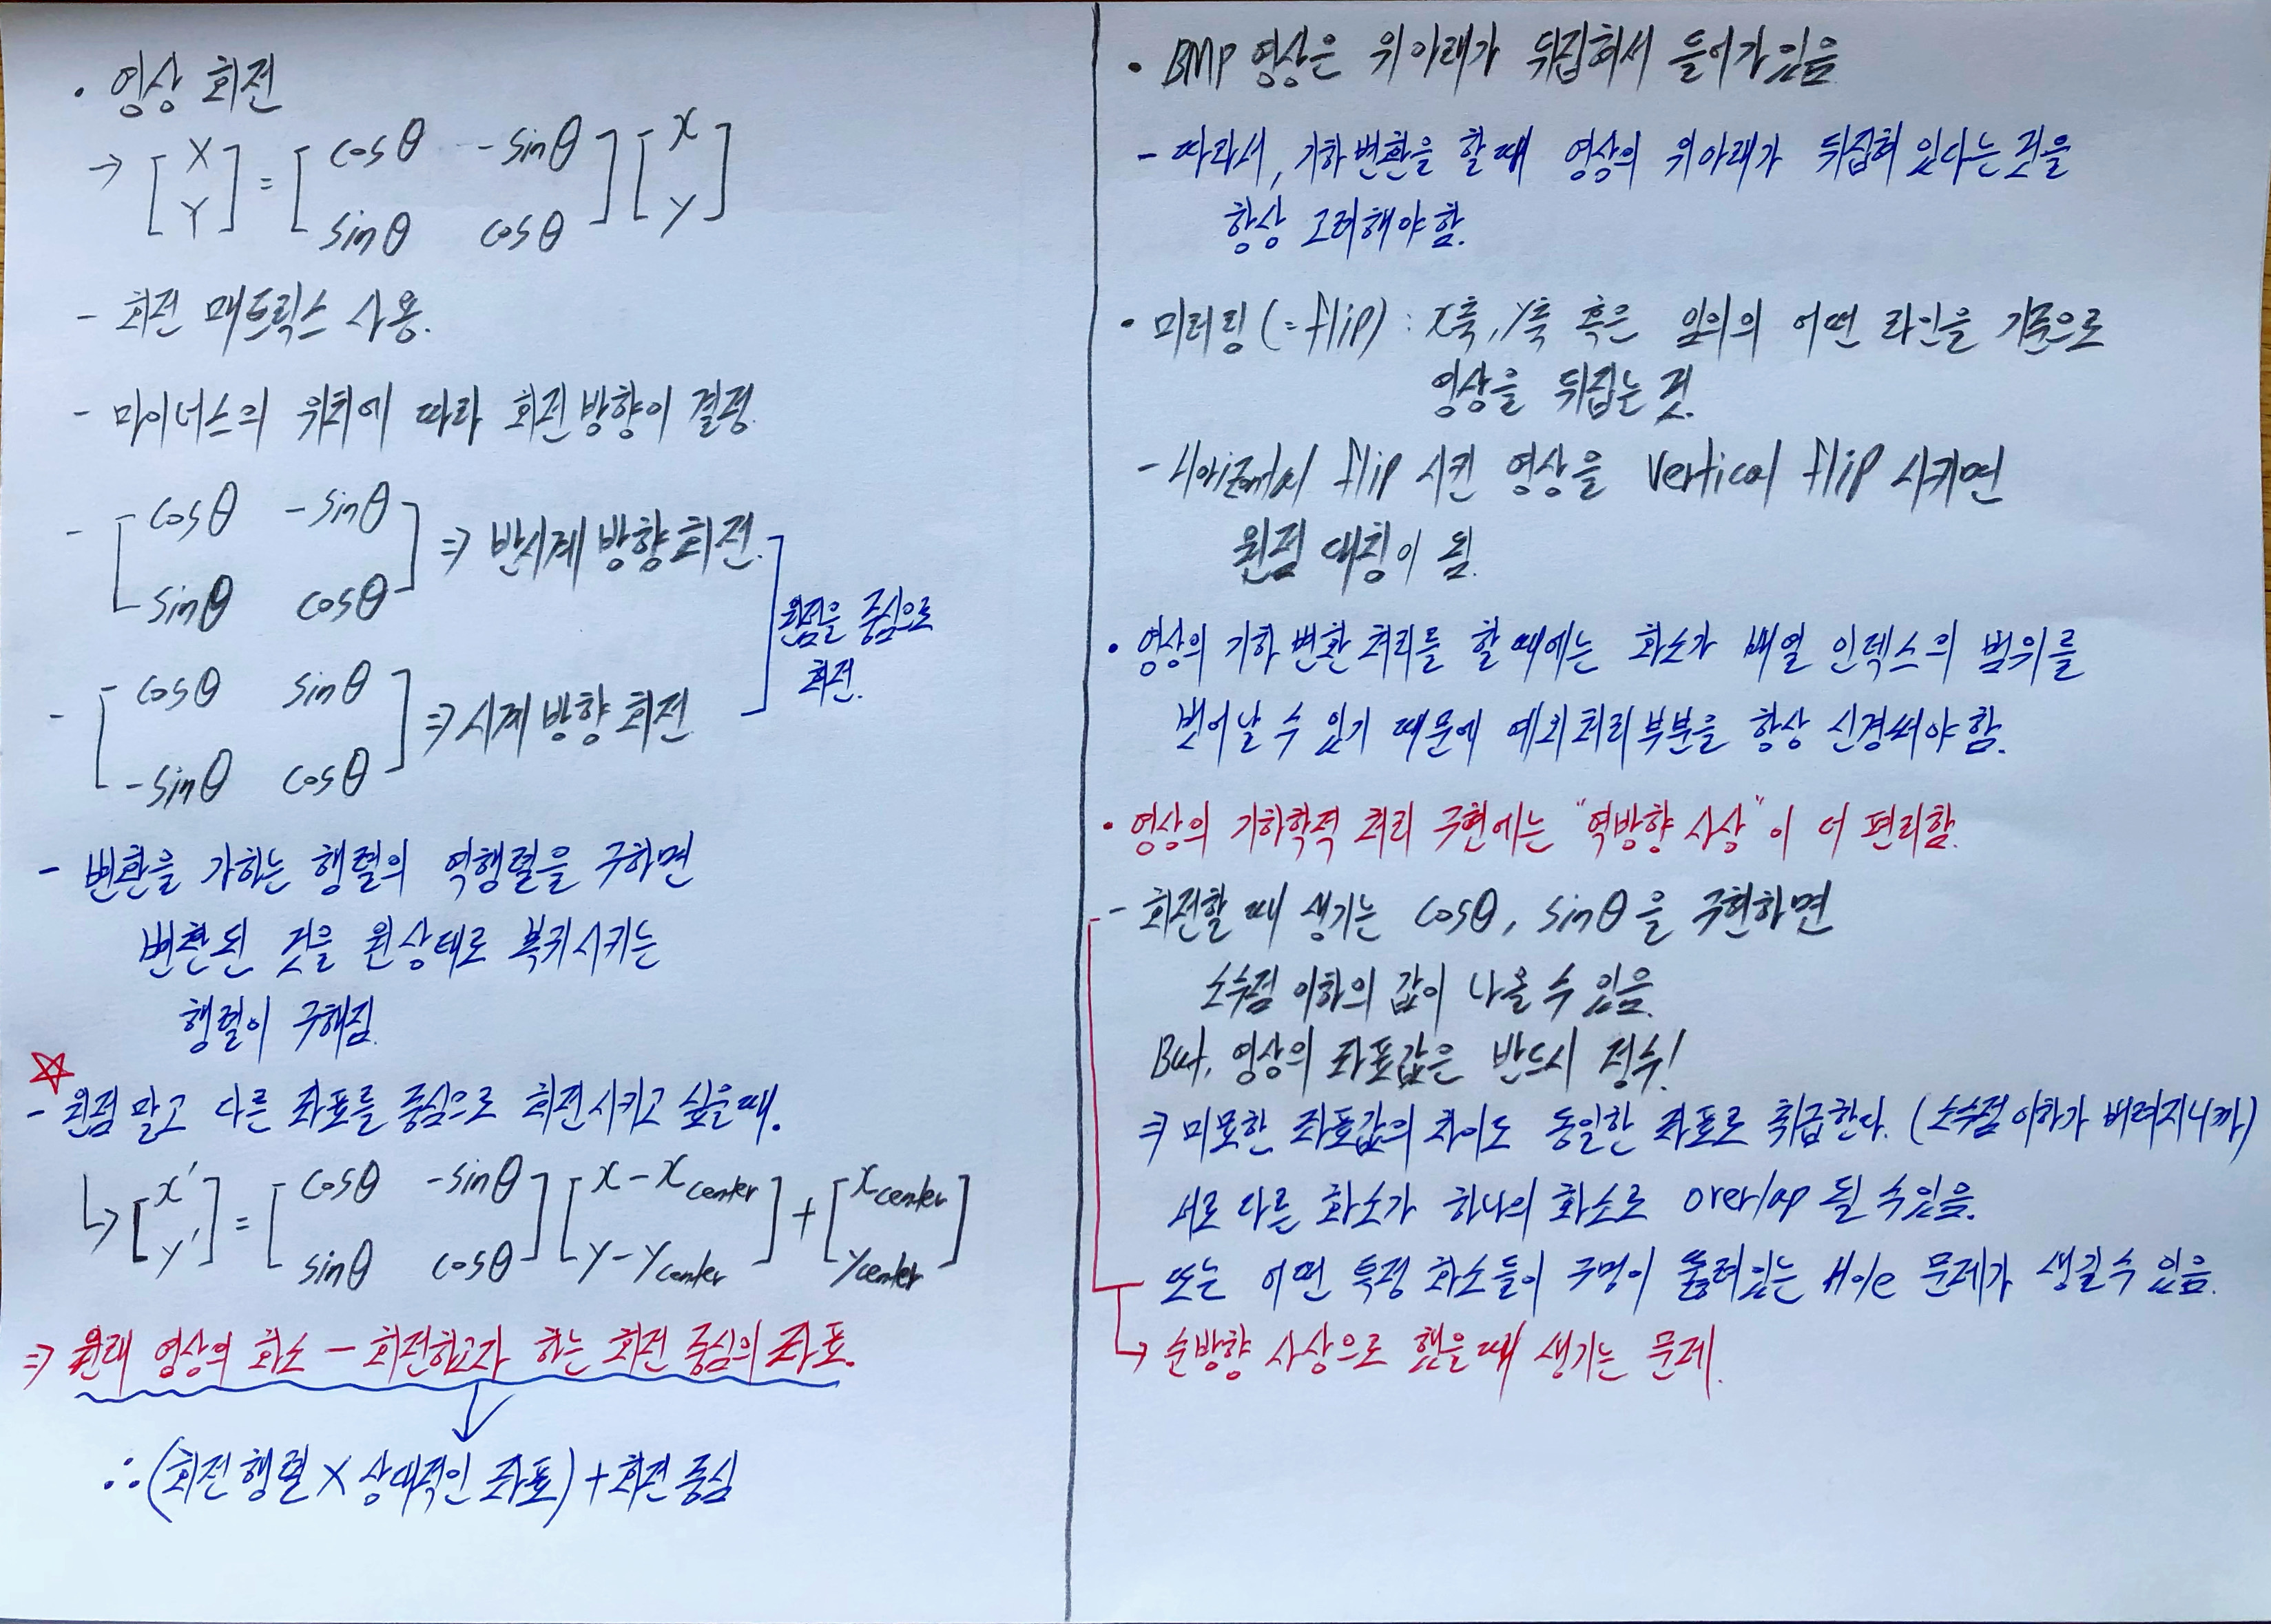 • 영상 회전
→ [X Y] = [cosθ -sinθ sinθ cosθ] [x y]
- 회전 매트릭스 사용.
- 마이너스의 위치에 따라 회전 방향이 결정.
- [cosθ -sinθ sinθ cosθ] ⇒ 반시계 방향 회전.
- [cosθ sinθ -sinθ cosθ] ⇒ 시계 방향 회전
원점을 중심으로
회전.
- 변환을 가하는 행렬의 역행렬을 구하면
변환된 것을 원상태로 복귀시키는
행렬이 구해짐.
☆
- 원점 말고 다른 좌표를 중심으로 회전시키고 싶을때.
↳ [x' y'] = [cosθ -sinθ sinθ cosθ] [x-xcenter y-ycenter] + [xcenter ycenter]
⇒ 원래 영상의 화소 - 회전하고자 하는 회전 중심의 좌표.
∴ (회전 행렬 × 상대적인 좌표) + 회전 중심
• BMP 영상은 위 아래가 뒤집혀서 들어가있음
- 따라서, 기하 변환을 할 때 영상의 위아래가 뒤집혀 있다는 것을
항상 고려해야 함.
• 미러링 (=flip) : x축, y축 혹은 임의의 어떤 라인을 기준으로
영상을 뒤집는 것.
- Horizontal flip 시킨 영상을 vertical flip 시키면
원점 대칭이 됨.
• 영상의 기하 변환 처리를 할 때에는 화소가 배열 인덱스의 범위를
벗어날 수 있기 때문에 예외처리 부분을 항상 신경써야 함.
• 영상의 기하학적 처리 구현에는 "역방향 사상"이 더 편리함.
- 회전할 때 생기는 cosθ, sinθ을 구현하면
소수점 이하의 값이 나올 수 있음.
But, 영상의 좌표값은 반드시 정수!
⇒ 미묘한 좌표값의 차이도 동일한 좌표로 취급한다. (소수점 이하가 버려지니까)
서로 다른 화소가 하나의 화소로 overlap 될 수 있음.
또는 어떤 특정 화소들이 구멍이 뚫려있는 Hole 문제가 생길 수 있음.
↳ 순방향 사상으로 했을때 생기는 문제.